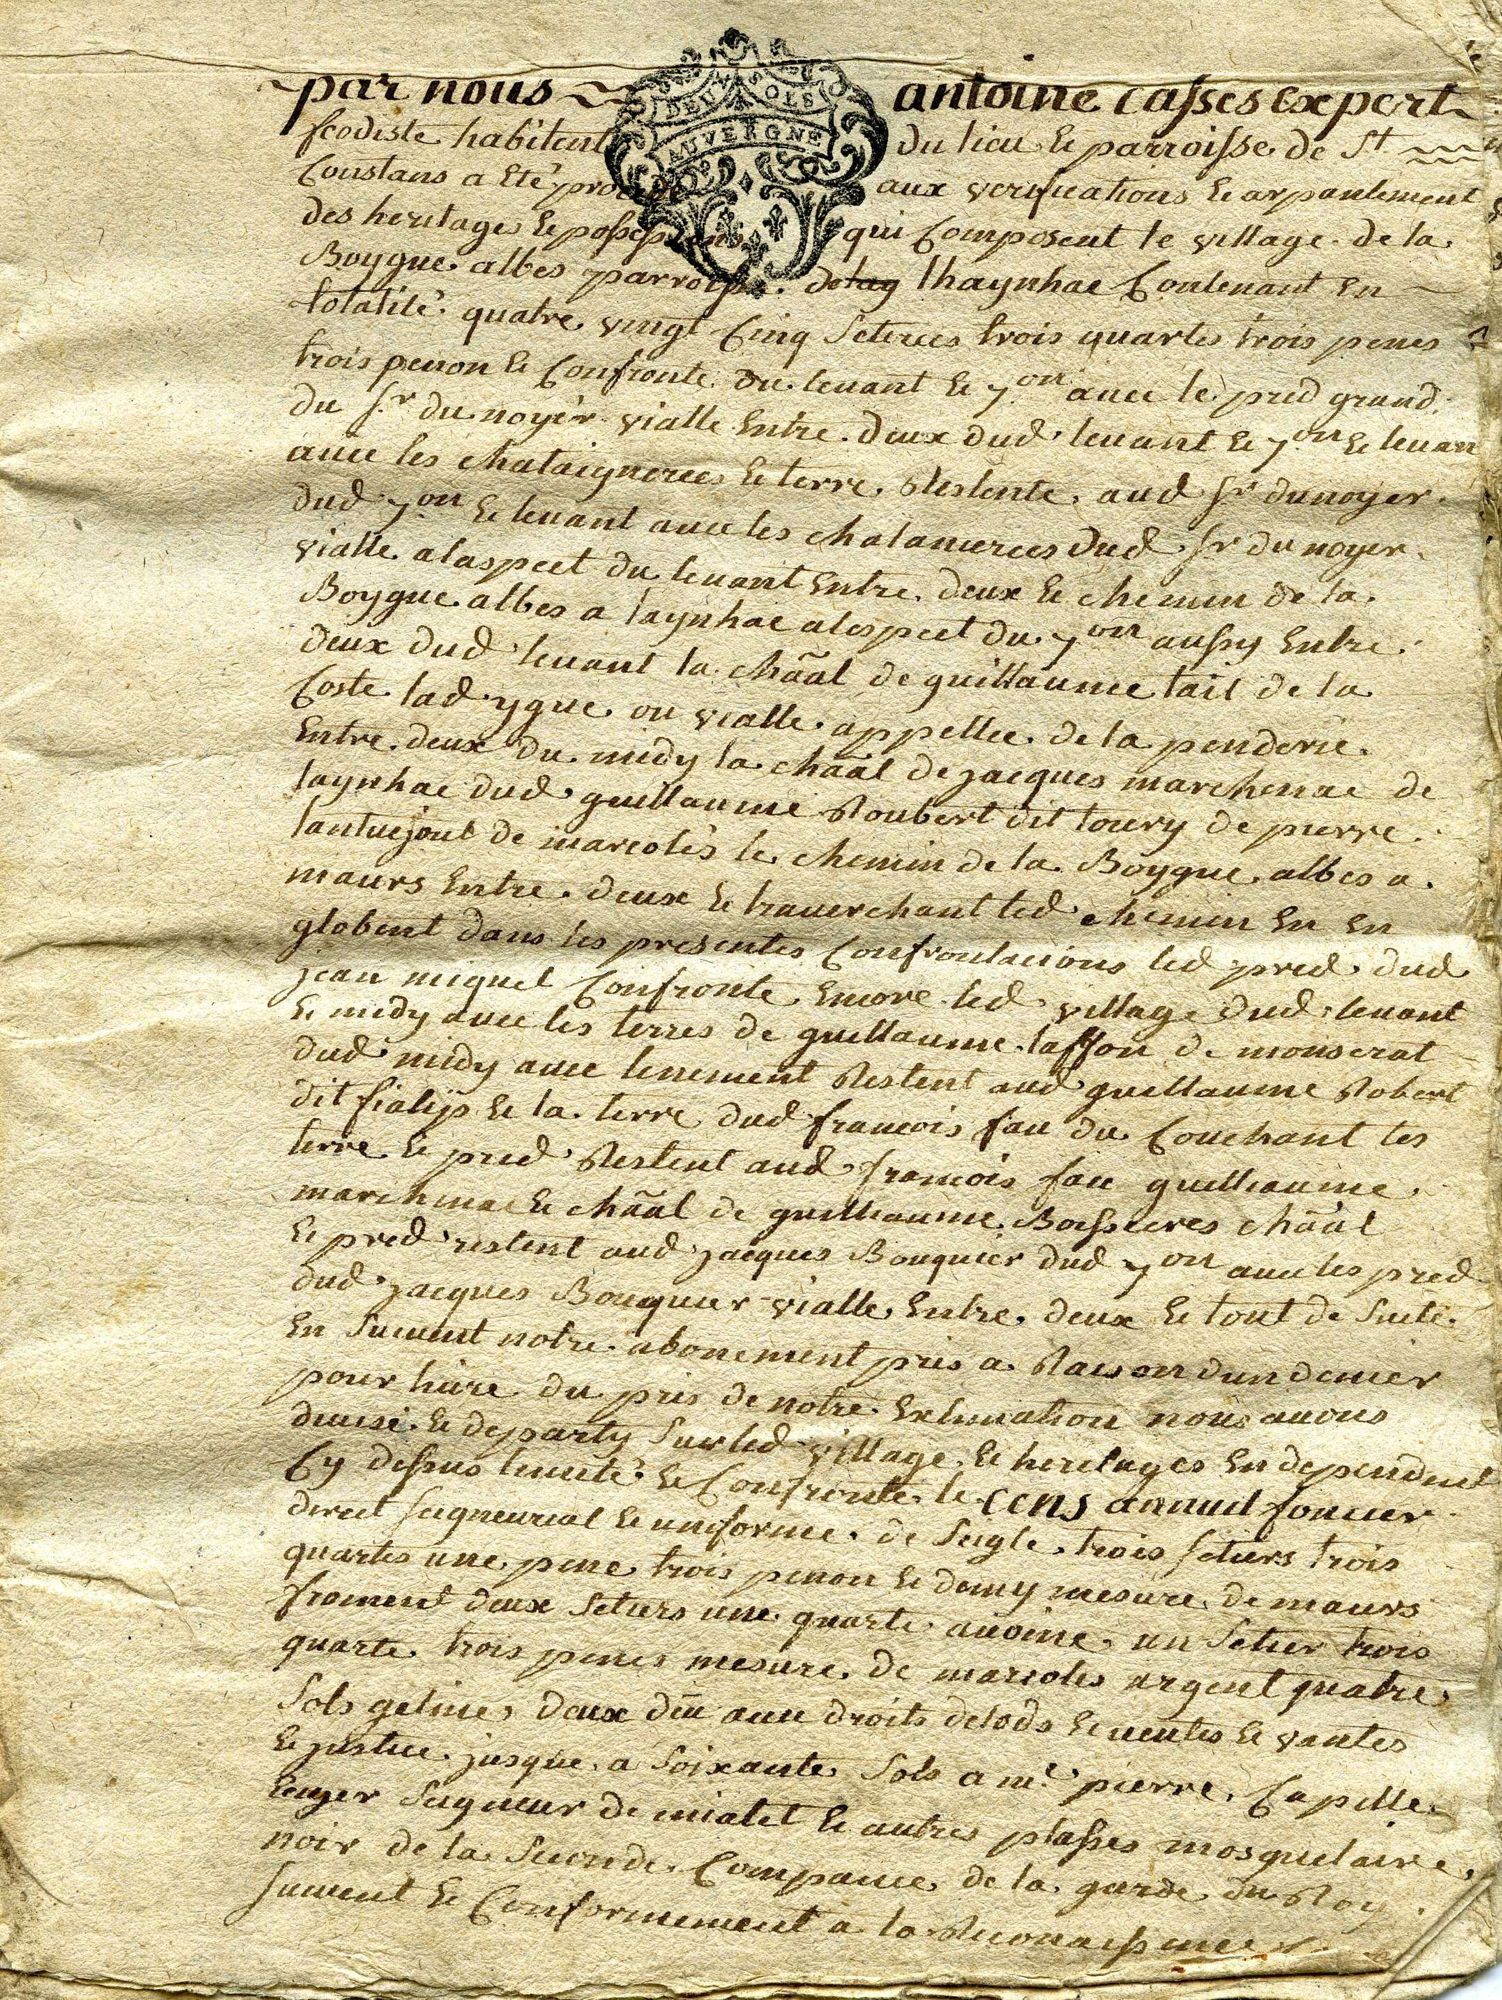 par nous antoine Casses expert
DEUX SOLS
AUVERGNE
feodiste habitent du lieu & parroisse de St
Constans a été pro aux verifications & arpantement
des heritages & possessions qui Composent le village de la
Boygue albes parroisse de lay lhaynhac Contenant en
totalité quatre vingt Cinq Seterees trois quartes trois penes
trois penon & Confronte du levant & 7.on avec le pred grand
du Sr du noyer vialle Entre deux dud levant & 7on & levan
avec les chataignerees & terre Restente aud Sr dunoyer
dud 7on & levant avec les chatanierees dud Sr du noyer
vialle alaspect du levant Entre deux & chemin de la
Boygue albes a laynhac alespect du 7on aussy Entre
deux dud levant la chãal de guillaume lait de la
Coste lad ygue ou vialle appellée de la penderie
Entre deux du midy la chãal de jacques marchenac de
laynhac dud guillaume Roubert dit toury de pierre
lantuejoul de marcolés le chemin de la Boygue albes a
maurs Entre deux & traverchant led chemin En En
globent dans les presentes Confrontacions led pred dud
jean miquel Confronte Encore led village dud levant
& midy avec les terres de guillaume laffon de monserat
dud midy avec tenement Restent aud guillaume Robert
dit fialip & la terre dud francois fau du Couchant les
terre & pred Restent aud francois fau guilhaume
marchenac & chãal de guilhaume Boissieres chãal
& pred restent aud jacques Bouquier dud 7on avec les pred
dud jacques Bouquier vialle Entre deux & tout de Suite
En Suivent notre abonement pris a Raison dun denier
pour livre du pris de notre Extimation nous avons
divisé & departy Sur led village & heritages En dependent
Cy dessus limité & Confronte le Cens annuel foncier
direct seigneurial & uniforme de Seigle trois setiers trois
quartes une pene trois penon & demy mesure de maurs
froment deux Setiers une quarte avoine un Setier trois
quarte trois penes mesure de marcoles argent quatre
Sols geline deux dũ avec droits delods & ventes & vantes
& justice jusque a Soixante Sols a mr pierre Capelle
Seigneur de mialet & autres plasses mosquetaire
noir de la Seconde Companie de la garde du Roy
Suivent & Conformement a la Reconaissance